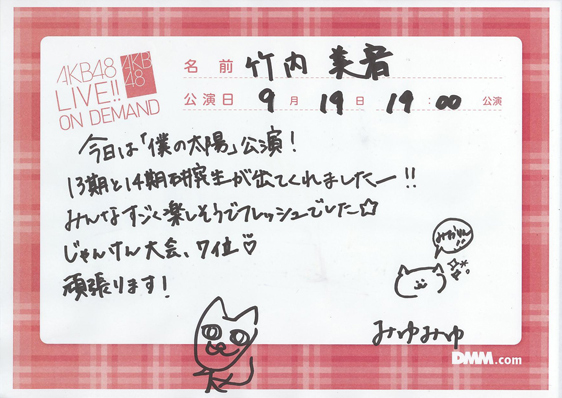 AKB48
LIVE!!
ON DEMAND
AKB
48
名前 竹内美宥
公演日 9月19日 19:00 公演
今日は「僕の太陽」公演!
13期と14期研究生が出てくれましたー!!
みんなすごく楽しそうでフレッシュでした☆
じゃんけん大会、7位♡
頑張ります!
みゆみゆ
DMM.com